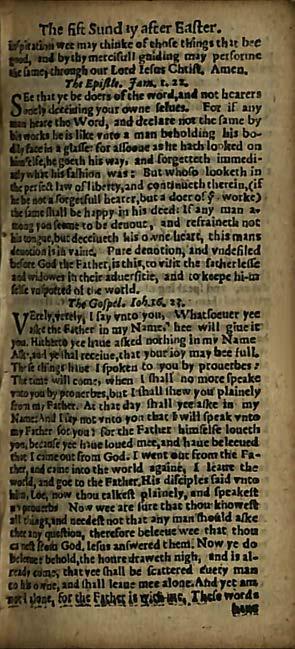 The fift Sunday after Easter.
inspiration wee may thinke of those things that bee
good, and by thy mercifull guiding may performe
the same, through our Lord Iesus Christ. Amen.
The Epistle. Jam. 1. 22.
SEe that ye be doers of the word, and not hearers
onely, deceiuing your owne selues. For if any
man heare the Word, and declare not the same by
his works he is like vnto a man beholding his bo-
dily face in a glasse: for assoone as he hath looked on
himselfe, he goeth his way, and forgetteth immedi-
ately what his fashion was: But whoso looketh in
the perfect law of liberty, and continueth therein, (if
he be not a forgetfull hearer, but a doer of ye worke)
the same shall be happy in his deed: If any man a-
mong you seeme to be deuout, and refraineth not
his tongue, but deceiueth his owne heart, this mans
deuotion is in vaine. Pure deuotion, and vndefiled
before God the Father, is this, to visit the fatherlesse
and widowes in their aduersitie, and to keepe him-
selfe vnspotted of the world.
The Gospel. Ioh. 16. 23.
VErely, verely, I say vnto you, Whatsoeuer yee
aske the Father in my Name, hee will giue it
you. Hitherto yee haue asked nothing in my Name
Aske, and ye shal receiue, that your ioy may bee full.
These things haue I spoken to you by prouerbes:
The time will come, when I shall no more speake
vnto you by prouerbes, but I shall shew you plainely
from my Father. At that day shall yee aske in my
Name: And I say not vnto you that I will speak vnto
my Father for you: for the Father himselfe loueth
you, because yee haue loued mee, and haue beleeued
that I came out from God. I went out from the Fa-
ther, and came into the world againe, I leaue the
world, and goe to the Father. His disciples said vnto
him, Loe, now thou talkest plainely, and speakest
no prouerbe Now wee are sure that thou knowest
all things, and needest not that any man should aske
thee any question, therefore beleeue wee that thou
camest from God, Iesus answered them. Now ye do
beleeue: behold, the houre draweth nigh, and is al-
ready come, that yee shall be scattered euery man
to his owne, and shall leaue mee alone. And yet am
not I alone, for the Father is with me, These words
haue